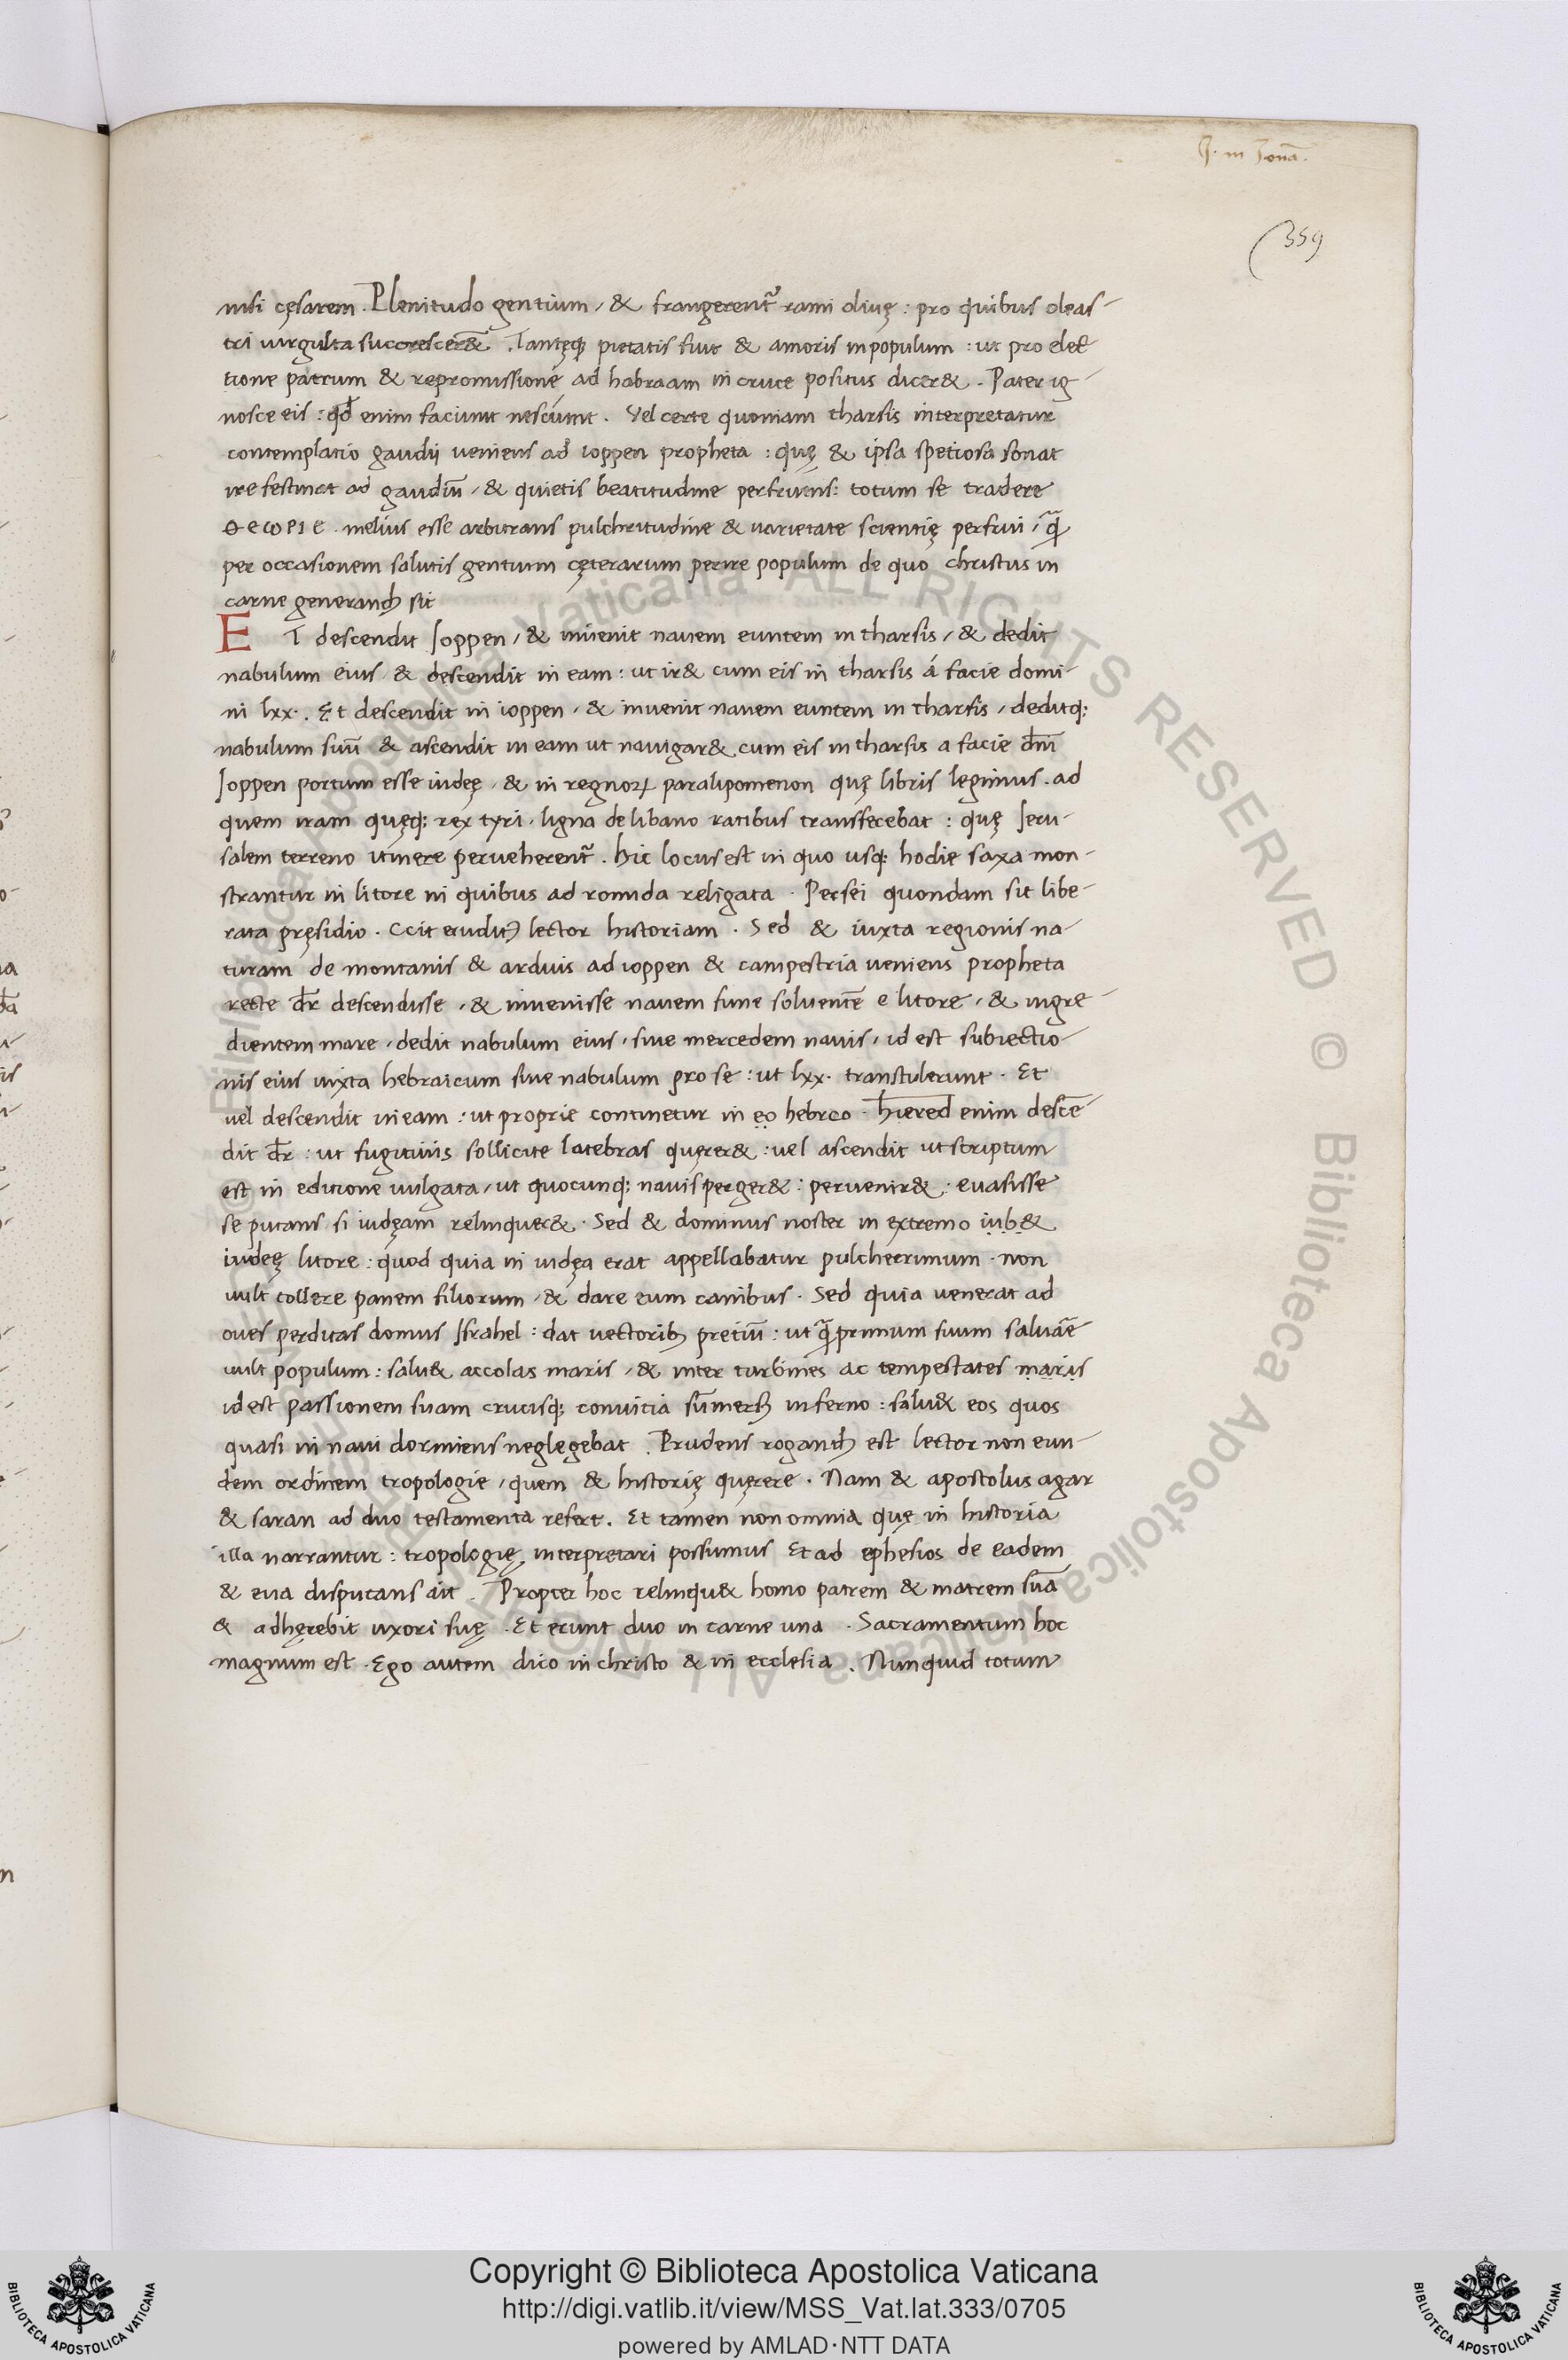 J. in Jonā.
(359
nisi cęsarem. Plenitudo gentium, & frangerent᷑ rami olivę: pro quibus oleas-
tri virgulta succrescer&. Tantęq; pietatis fuit & amoris in populum: ut pro elec-
tione patrum & repromissione ad habraam in cruce positus dicer&. Pater ig-
nosce eis: qd̄ enim faciunt nesciunt. Vel certe quoniam tharsis interpretatur
contemplatio gaudii veniens ad ioppen propheta: quę & ipsa spetiosa sonat
ire festinat ad gaudiū, & quietis beatitudine perfruens: totum se tradere
θεωριε. melius esse arbitrans pulchritudine & varietate scientię perfrui, q̄
per occasionem salutis gentium cęterarum perire populum de quo christus in
carne generandꝰ sit
ET descendit Joppen, & invenit navem euntem in tharsis, & dedit
nabulum eius & descendit in eam: ut ir& cum eis in tharsis á facie domi-
ni lxx. Et descendit in ioppen, & invenit navem euntem in tharsis, deditq;
nabulum suū & ascendit in eam ut navigar& cum eis in tharsis a facie dm̄
Joppen portum esse iudeę, & in regnoꝝ paralipomenon quę libris legimus. ad
quem iram quęq; rex tyri. ligna de libano ratibus transferebat: quę Jeru-
salem terreno itinere perveherent᷑. Hic locus est in quo usq; hodie saxa mon-
strantur in litore in quibus ad romida religata. Persei quondam sit libe-
rata pręsidio. Ccit eruditꝰ lector historiam. Sed & iuxta regionis na-
turam de montanis & arduis ad ioppen & campestria veniens propheta
recte dr̄ descendisse, & invenisse navem fune solventē e litore, & ingre-
dientem mare, dedit nabulum eius, sive mercedem navis, id est subiectio-
nis eius iuxta hebraicum sive nabulum pro se: ut lxx. transtulerunt. Et
vel descendit in eam: ut proprie continetur in eo hebreo. hiered enim descē-
dit dr̄: ut fugitivis sollicite latebras quęrer&: vel ascendit ut scriptum
est in editione vulgata, ut quocunq; navis perger&: pervenir&: evasisse
se putans si iudęam relinquer&. Sed & dominus noster in extremo iub&
iudeę litore: quod quia in iudęa erat appellabatur pulcherrimum. non
vult tollere panem filiorum, & dare eum canibus. Sed quia venerat ad
oves perditas domus Jsrahel: dat vectoribꝰ pretiū: ut q̄ primum suum salvāē
vult populum: salu& accolas maris, & inter turbines ac tempestates maris
id est passionem suam crucisq; convitia sūmersꝰ inferno: salu& eos quos
quasi in navi dormiens neglegebat. Prudens rogandꝰ est lector non eun-
dem ordinem tropologie, quem & historię quęrere. Nam & apostolus agar
& saran ad duo testamenta refert. Et tamen non omnia quę in historia
illa narrantur: tropologię interpretari possumus Et ad ephesios de eadem
& eva disputans ait. Propter hoc relinqu& homo patrem & matrem suā
& adhęrebit uxori suę. Et erunt duo in carne una. Sacramentum hoc
magnum est. Ego autem dico in christo & in ecclesia. Nunquid totum
Copyright © Biblioteca Apostolica Vaticana
http://digi.vatlib.it/view/MSS_Vat.lat.333/0705
powered by AMLAD·NTT DATA